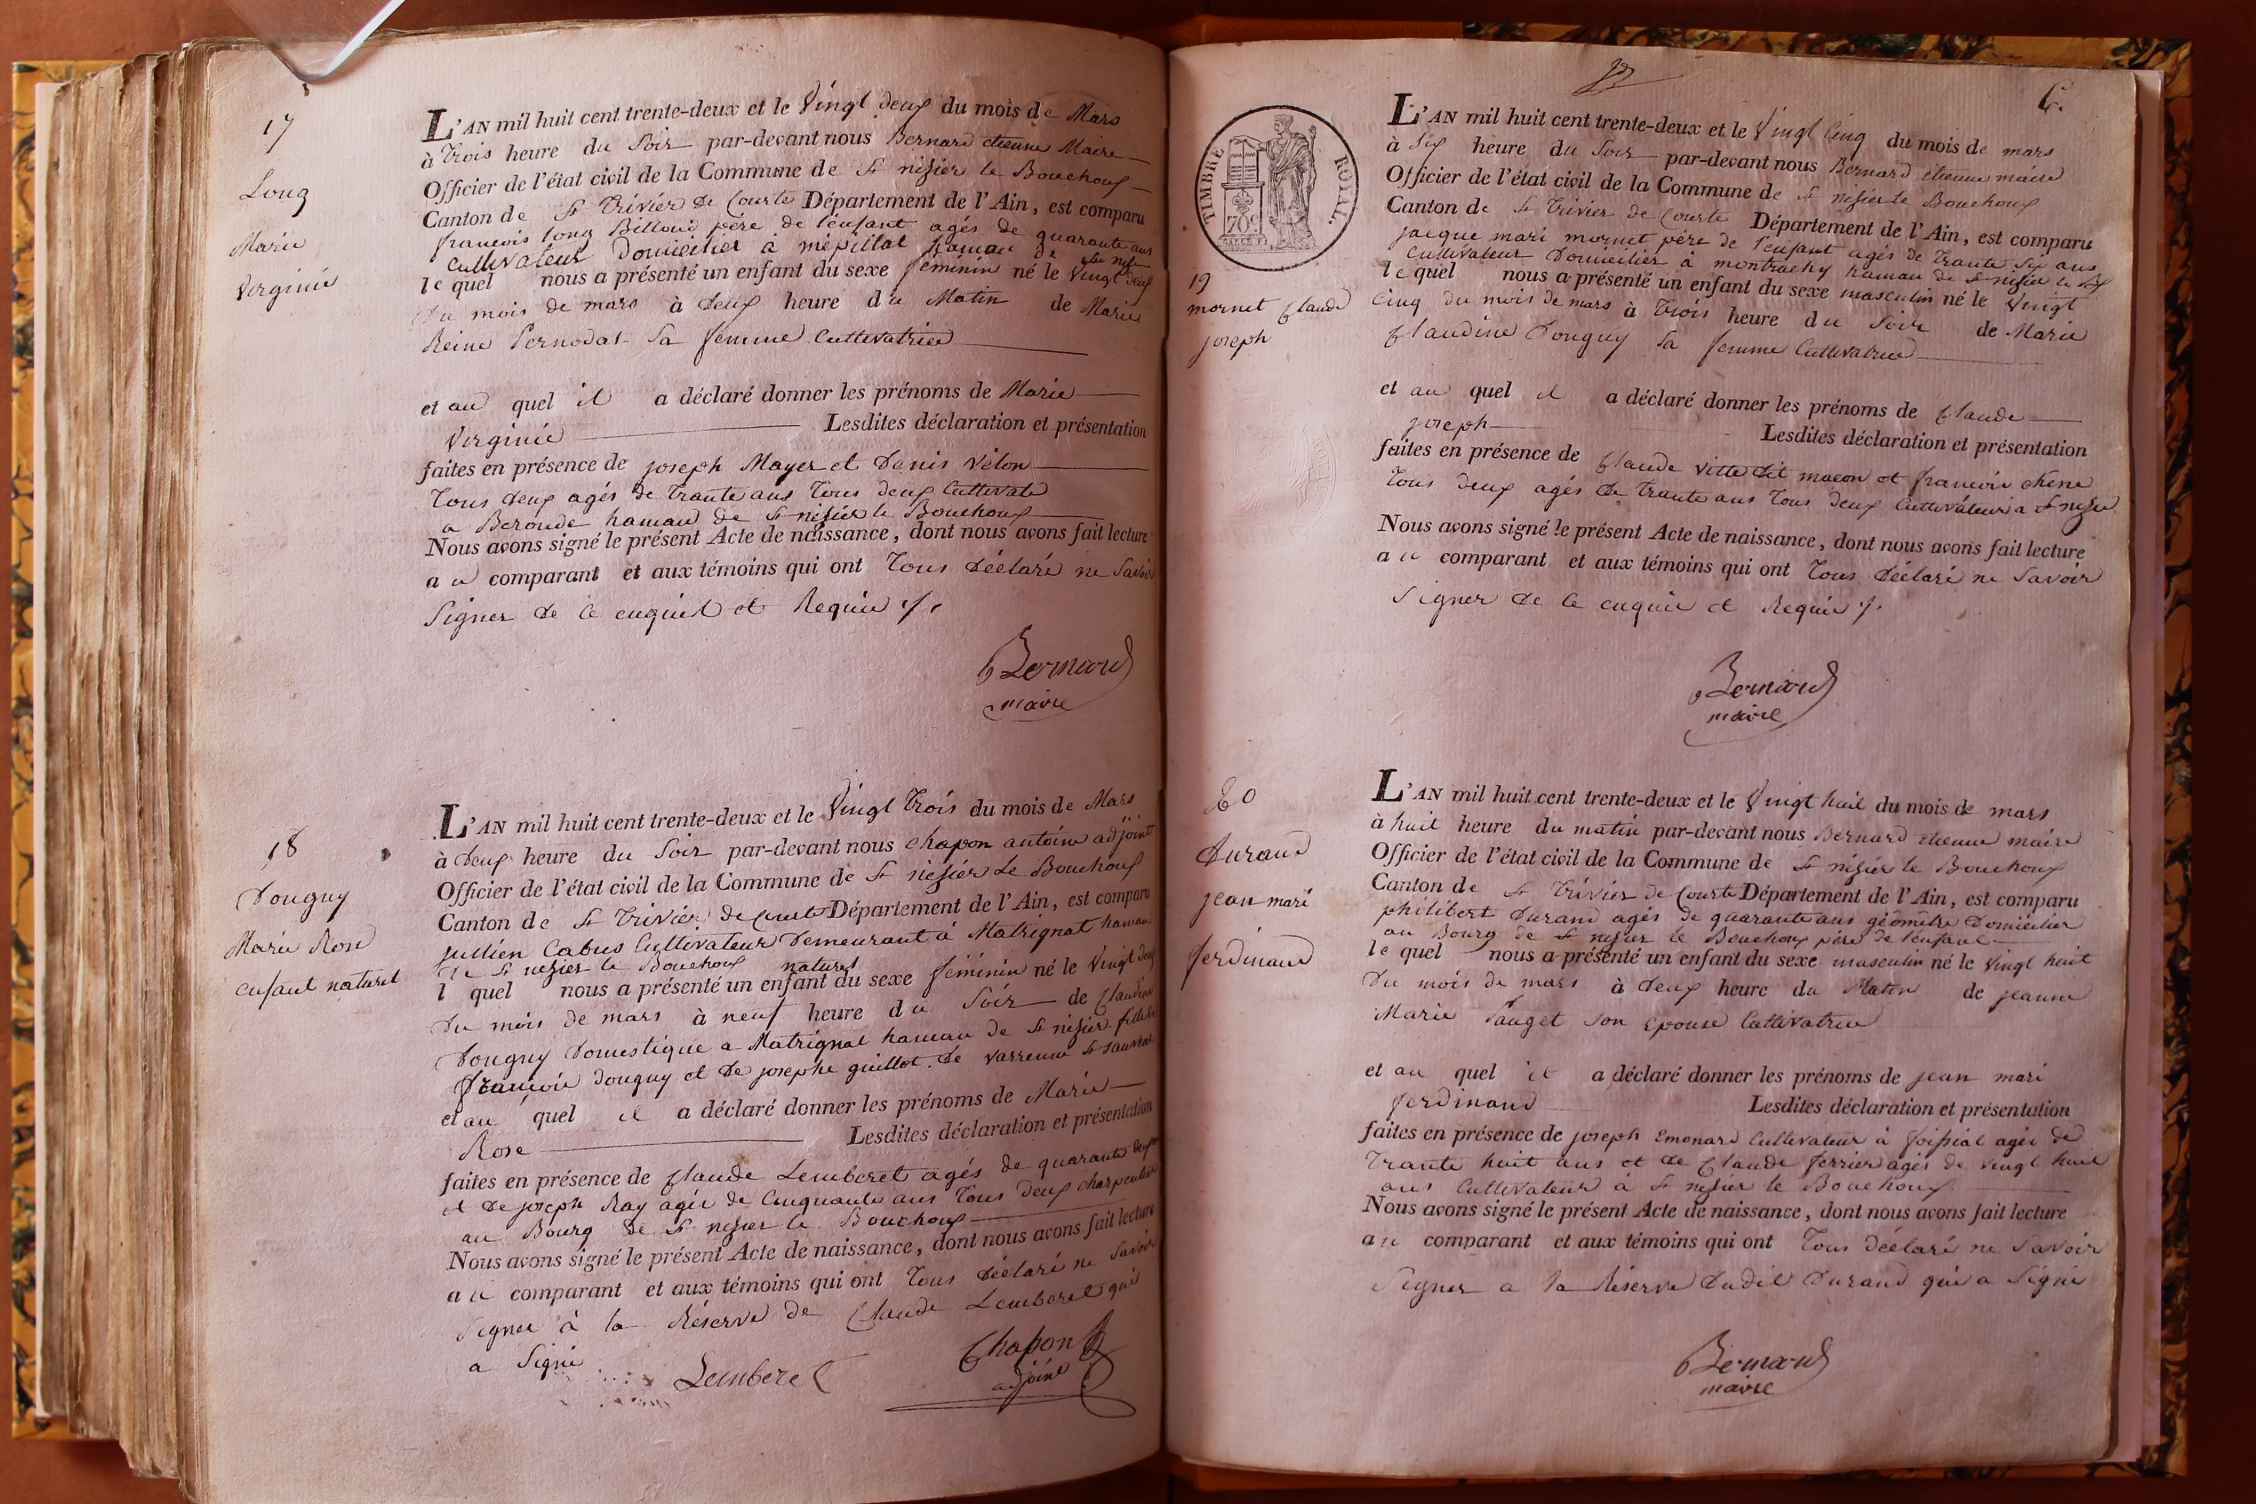 17
Long
Marie
Virginie
L'AN mil huit cent trente-deux et le Vingt deux du mois de Mars
à trois heure du Soir par-devant nous Bernard etienne Maire
Officier de l'état civil de la Commune de St nisier le Bouchoux
Canton de St trivier de Courte Département de l'Ain, est comparu
francois long Billoud père de l'enfant agés de quarante ans
cultivateur Domicilier à mépillat hamau de St nisier
lequel nous a présenté un enfant du sexe féminin né le Vingt deux
du mois de mars à deux heure du Matin de Marie
Reine Pernodat Sa femme Cultivatrice
et au quel il a déclaré donner les prénoms de Marie
Virginie Lesdites déclaration et présentation
faites en présence de joseph Mayer et Denis Vélon
tous deux agés de trante ans tous deux Cultivate
a Beronde hamau de St nisier le Bouchoux
Nous avons signé le présent Acte de naissance, dont nous avons fait lecture
au comparant et aux témoins qui ont tous déclaré ne Savoir
Signer de ce enquit et Requie ./.
Bernard
maire
18
Douguy
Marie Rose
enfant naturel
L'AN mil huit cent trente-deux et le Vingt trois du mois de Mars
à deux heure du Soir par-devant nous chapon antoine adjoint
Officier de l'état civil de la Commune de St nisier Le Bouchoux
Canton de St trivier de Courte Département de l'Ain, est comparu
jullien Cabus Cultivateur Demeurant à Matrignat hamau
de St nisier le Bouchoux naturel
l quel nous a présenté un enfant du sexe féminin né le Vingt deux
du mois de mars à neuf heure du Soir de Claudine
Douguy Domestique a Matrignat hamau de St nisier fille de
francois douguy et de josephe guillot de varenne St sauveur
et au quel il a déclaré donner les prénoms de Marie
Rose Lesdites déclaration et présentation
faites en présence de Claude Lemberet agés de quarante deux
et de joseph Ray agée de Cinquante ans tous deux charpentier
au Bourg de St nisier le Bouchoux
Nous avons signé le présent Acte de naissance, dont nous avons fait lecture
au comparant et aux témoins qui ont tous déclaré ne Savoir
Signer à la Réserve de Claude Lemberet qui
a Signé
Lemberet
Chapon
adjoint
6.
TIMBRE ROYAL.
70c
19
mornet Claude
joseph
L'AN mil huit cent trente-deux et le Vingt Cinq du mois de mars
à Six heure du Soir par-devant nous Bernard etienne maire
Officier de l'état civil de la Commune de St nisier le Bouchoux
Canton de St trivier de Courte Département de l'Ain, est comparu
jacque mari mornet père de l'enfant agés de trante Six ans
cultivateur Domicilier à montrachy hamau de St nisier le Bx
lequel nous a présenté un enfant du sexe masculin né le Vingt
Cinq du mois de mars à trois heure du Soir de Marie
Claudine Douguy Sa femme Cultivatrice
et au quel il a déclaré donner les prénoms de Claude
joseph Lesdites déclaration et présentation
faites en présence de Claude vitte dit macon et francois chêne
tous deux agés de trante ans tous deux Cultivateur a St nisier
Nous avons signé le présent Acte de naissance, dont nous avons fait lecture
au comparant et aux témoins qui ont tous déclaré ne Savoir
Signer de ce enquie et Requie ./.
Bernard
maire
20
Durand
jean mari
ferdinand
L'AN mil huit cent trente-deux et le Vingt huit du mois de mars
à huit heure du matin par-devant nous Bernard etienne maire
Officier de l'état civil de la Commune de St nisier le Bouchoux
Canton de St trivier de Courte Département de l'Ain, est comparu
philibert Durand agés de quarante ans géomêtre Domicilier
au Bourg de St nisier le Bouchoux père de l'enfant
lequel nous a présenté un enfant du sexe masculin né le Vingt huit
du mois de mars à deux heure du Matin de jeanne
Marie Pauget Son Epouse Cultivatrice
et au quel il a déclaré donner les prénoms de jean mari
ferdinand Lesdites déclaration et présentation
faites en présence de joseph Emonard Cultivateur à foissiat agée de
trante huit ans et de Claude ferrier agés de vingt huit
ans Cultivateur à St nisier le Bouchoux
Nous avons signé le présent Acte de naissance, dont nous avons fait lecture
au comparant et aux témoins qui ont tous déclaré ne Savoir
Signer a la Réserve dudit Durand qui a Signé
Bernard
maire